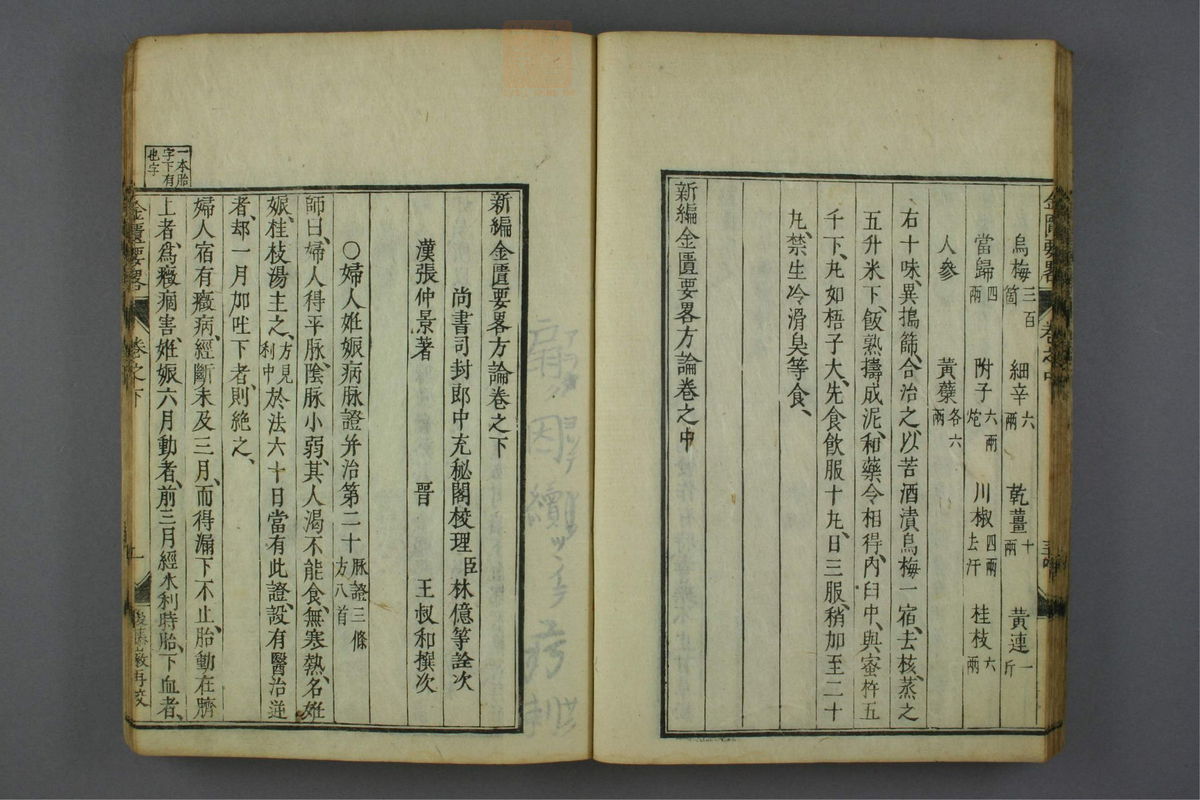 烏梅三百箇 細辛六兩 乾薑十兩 黃連一斤
當歸四兩 附子六兩炮 川椒四兩去汗 桂枝六兩
人參 黃蘗各六兩
右十味、異搗篩、合治之、以苦酒漬烏梅一宿、去核、蒸之
五升米下、飯熟擣成泥、和藥令相得、內臼中、與蜜杵五
千下、丸如梧子大、先食飲服十丸、日三服、稍加至二十
丸、禁生冷滑臭等食、
新編金匱要畧方論卷之中
新編金匱要畧方論卷之下
尚書司封郎中充秘閣校理臣林億等詮次
漢張仲景著 晉 王叔和撰次
○婦人姙娠病脉證并治第二十脉證三條方八首
師曰、婦人得平脉、陰脉小弱、其人渴不能食、無寒熱、名姙
娠、桂枝湯主之、方見利中於法六十日當有此證、設有醫治逆
者、却一月加吐下者、則絶之、
婦人宿有癥病、經斷未及三月、而得漏下不止、胎動在臍
上者、爲癥痼害姙娠六月動者、前三月經水利時胎、下血者、
一本胎字下有也字
金匱要畧 卷之下